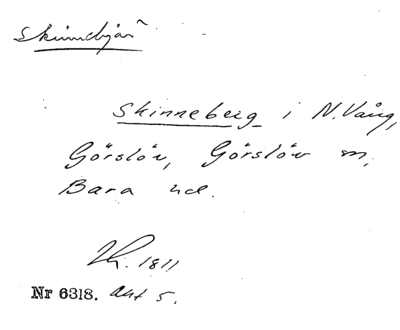 Skinnbjär
Skinneberg i N. Vång,
Görslöv, Görslöv sn,
Bara hd.
1811
Nr 6318. Akt 5.